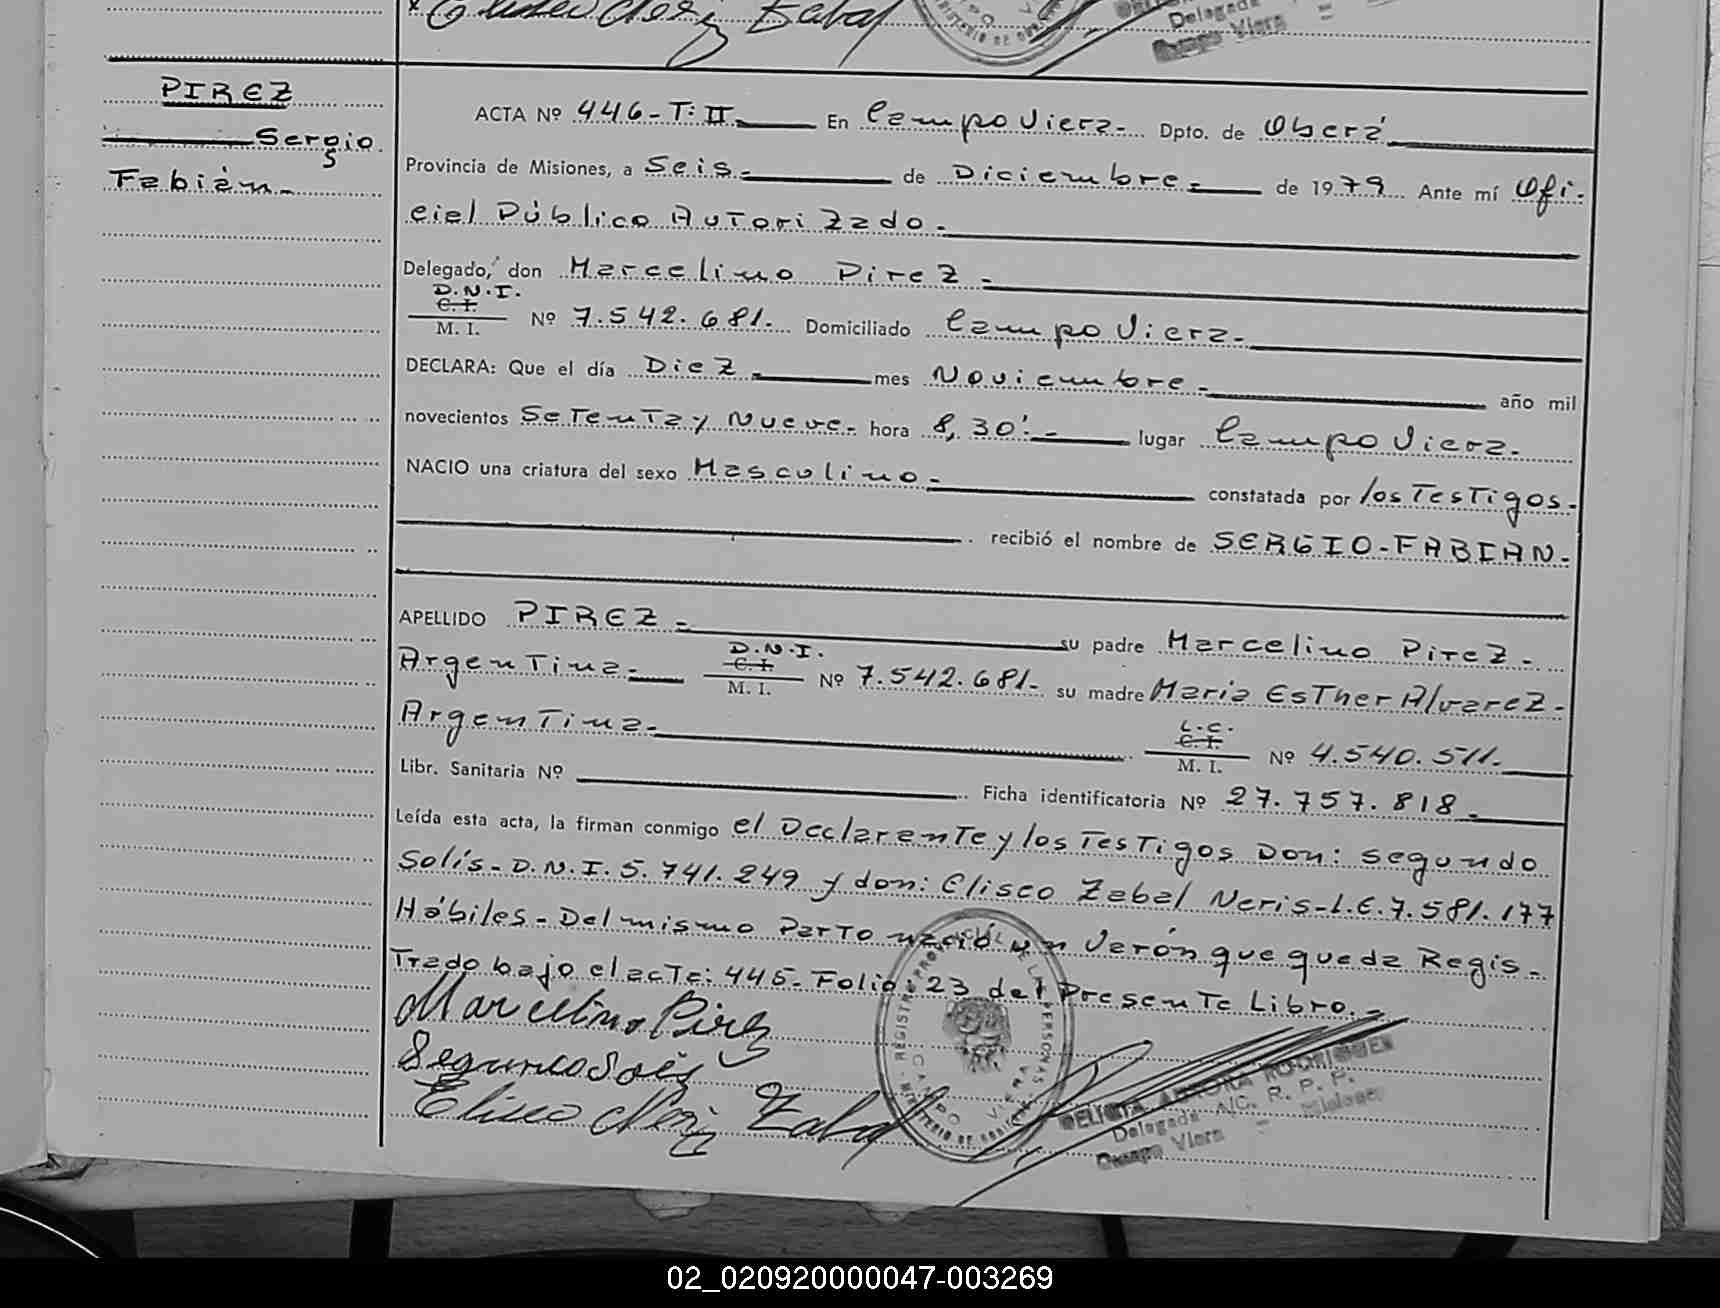 PIREZ
Sergio
Fabián-
ACTA Nº 446-T:II- En Campo Viera- Dpto. de Oberá
Provincia de Misiones, a Seis- de Diciembre- de 1979 Ante mí Ofi-
cial Público Autorizado-
Delegado, don Marcelino Pirez-
D.N.I.
C. I.
M. I. Nº 7.542.681.- Domiciliado Campo Viera-
DECLARA: Que el día Diez- mes Noviembre- año mil
novecientos Setenta y Nueve- hora 8,30'- lugar Campo Viera-
NACIO una criatura del sexo Masculino- constatada por los Testigos-
recibió el nombre de SERGIO-FABIAN-
APELLIDO PIREZ- su padre Marcelino Pirez-
Argentina- D.N.I. C. I. M. I. Nº 7.542.681- su madre Maria Esther Alvarez-
Argentina- L.C. C. I. M. I. Nº 4.540.511-
Libr. Sanitaria Nº Ficha identificatoria Nº 27.757.818-
Leída esta acta, la firman conmigo el Declarante y los Testigos Don: Segundo
Solís- D.N.I. 5.741.249 y don: Eliseo Zabal Neris-L.E.7.581.177
Hábiles- Del mismo Parto nació un Varón que queda Regis-
Trado bajo el acta: 445- Folio: 23 del Presente Libro.-
Marcelino Pirez
Segundo Solis
Eliseo Neriz Zabal
REGISTRO PROVINCIAL DE LAS PERSONAS
CAMPO VIERA
MINISTERIO DE GOBIERNO
Delegada A/C. R. P. P.
Campo Viera - Misiones
02_020920000047-003269